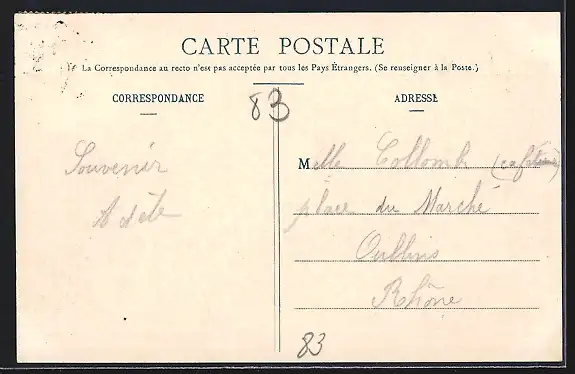 CARTE POSTALE
La Correspondance au recto n'est pas acceptée par tous les Pays Étrangers. (Se renseigner à la Poste.)
CORRESPONDANCE
83
ADRESSE
Souvenir
Adèle
Melle Collomb
place du Marché
Oullins
Rhône
83